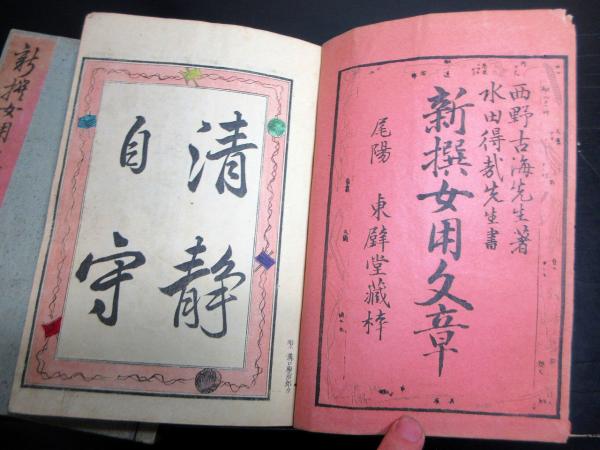 西野古海先生著
水田得哉先生書
新撰女用文章
尾陽 東壁堂藏梓
清静
自守
新撰女用